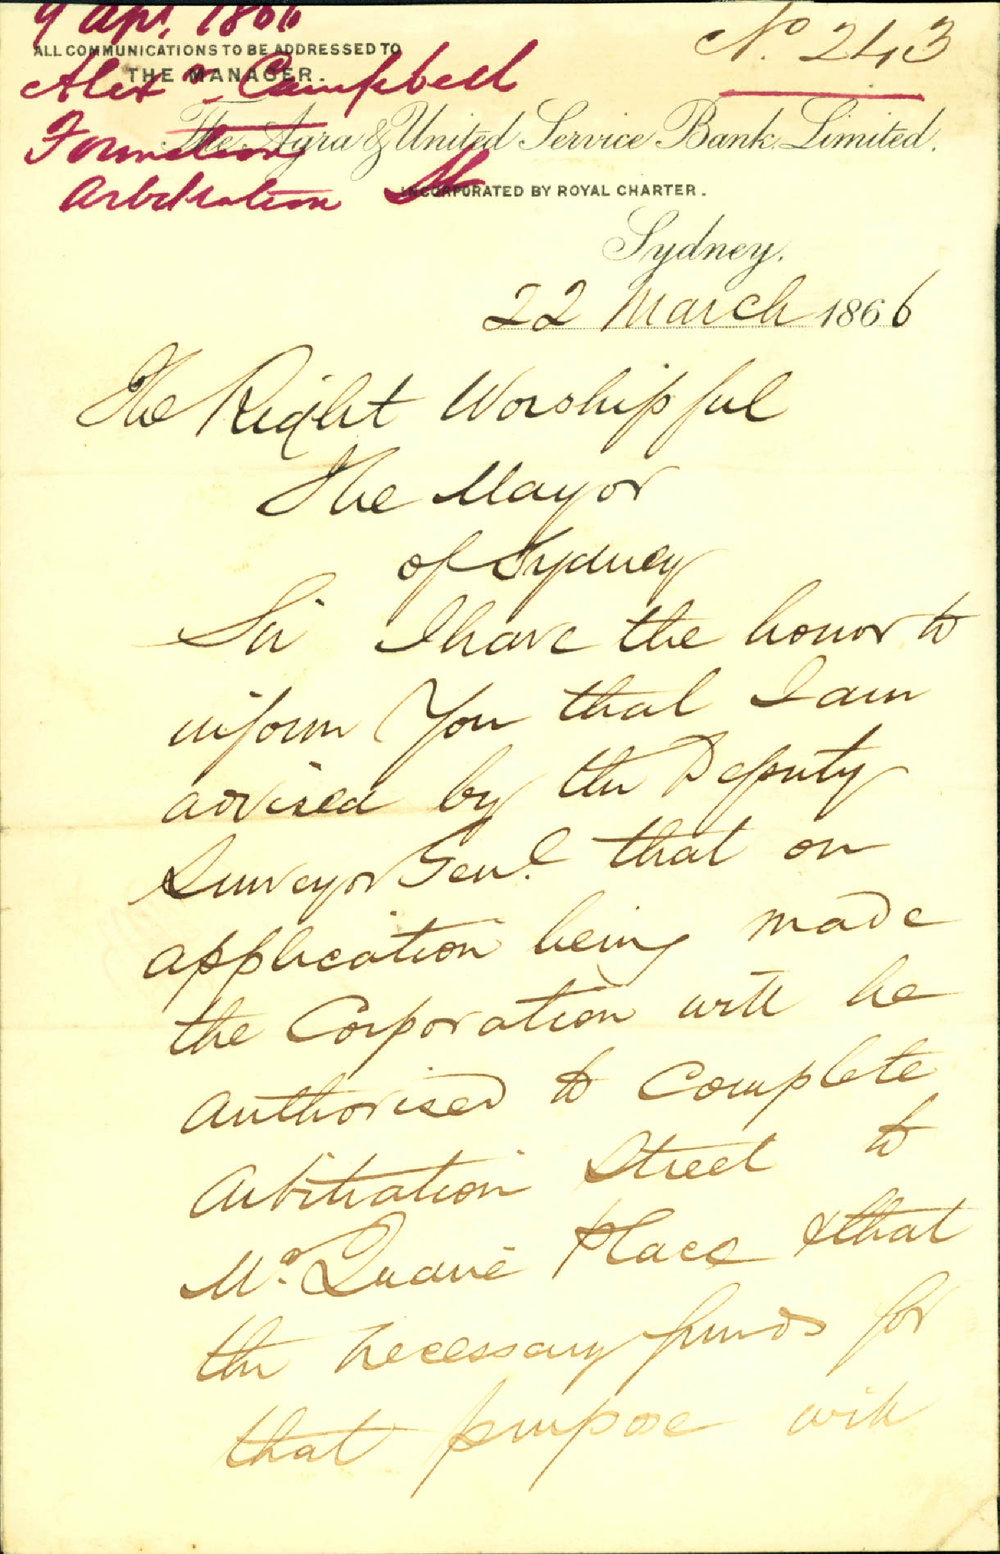 9 Apl. 1866
No. 243
ALL COMMUNICATIONS TO BE ADDRESSED TO
THE MANAGER.
Alexr Campbell
The Agra & United Service Bank Limited.
Formation
Arbitration St
INCORPORATED BY ROYAL CHARTER.
Sydney.
22 March 1866
The Right Worshipful
The Mayor
of Sydney
Sir I have the honor to
inform You that I am
advised by the Deputy
Surveyor Genl. that on
application being made
the Corporation will be
authorised to Complete
Arbitration Street to
Mc.Quarie Place & that
the necessary funds for
that purpose will